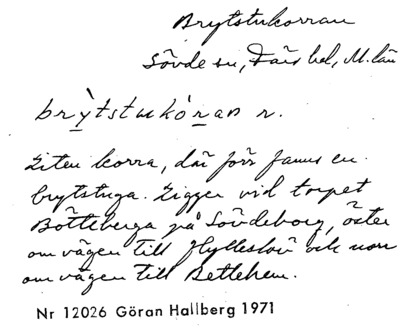 Brytstukorran
Sövde sn, Färs hd, M. län
brỳtstukòran r.
Liten korra, där förr fanns en
brytstuga. Ligger vid torpet
Bötteberga på Sövdeborg, öster
om vägen till Hylleskov och norr
om vägen till Betlehem.
Nr 12026 Göran Hallberg 1971